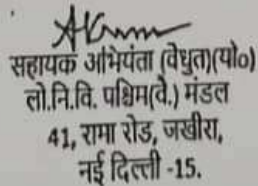 सहायक अभियंता (वेधुत)(यो०)
लो.नि.वि. पश्चिम(वे.) मंडल
41, रामा रोड, जखीरा,
नई दिल्ली -15.